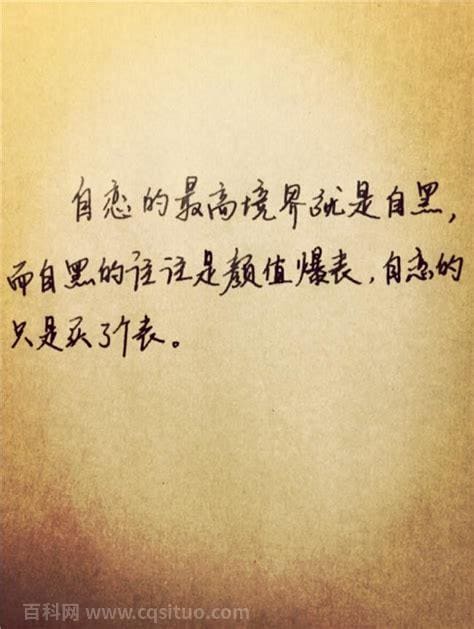 自恋的最高境界就是自黑,
而自黑的往往是颜值爆表,自恋的
只是买了个表。
百科网 www.cqsituo.com